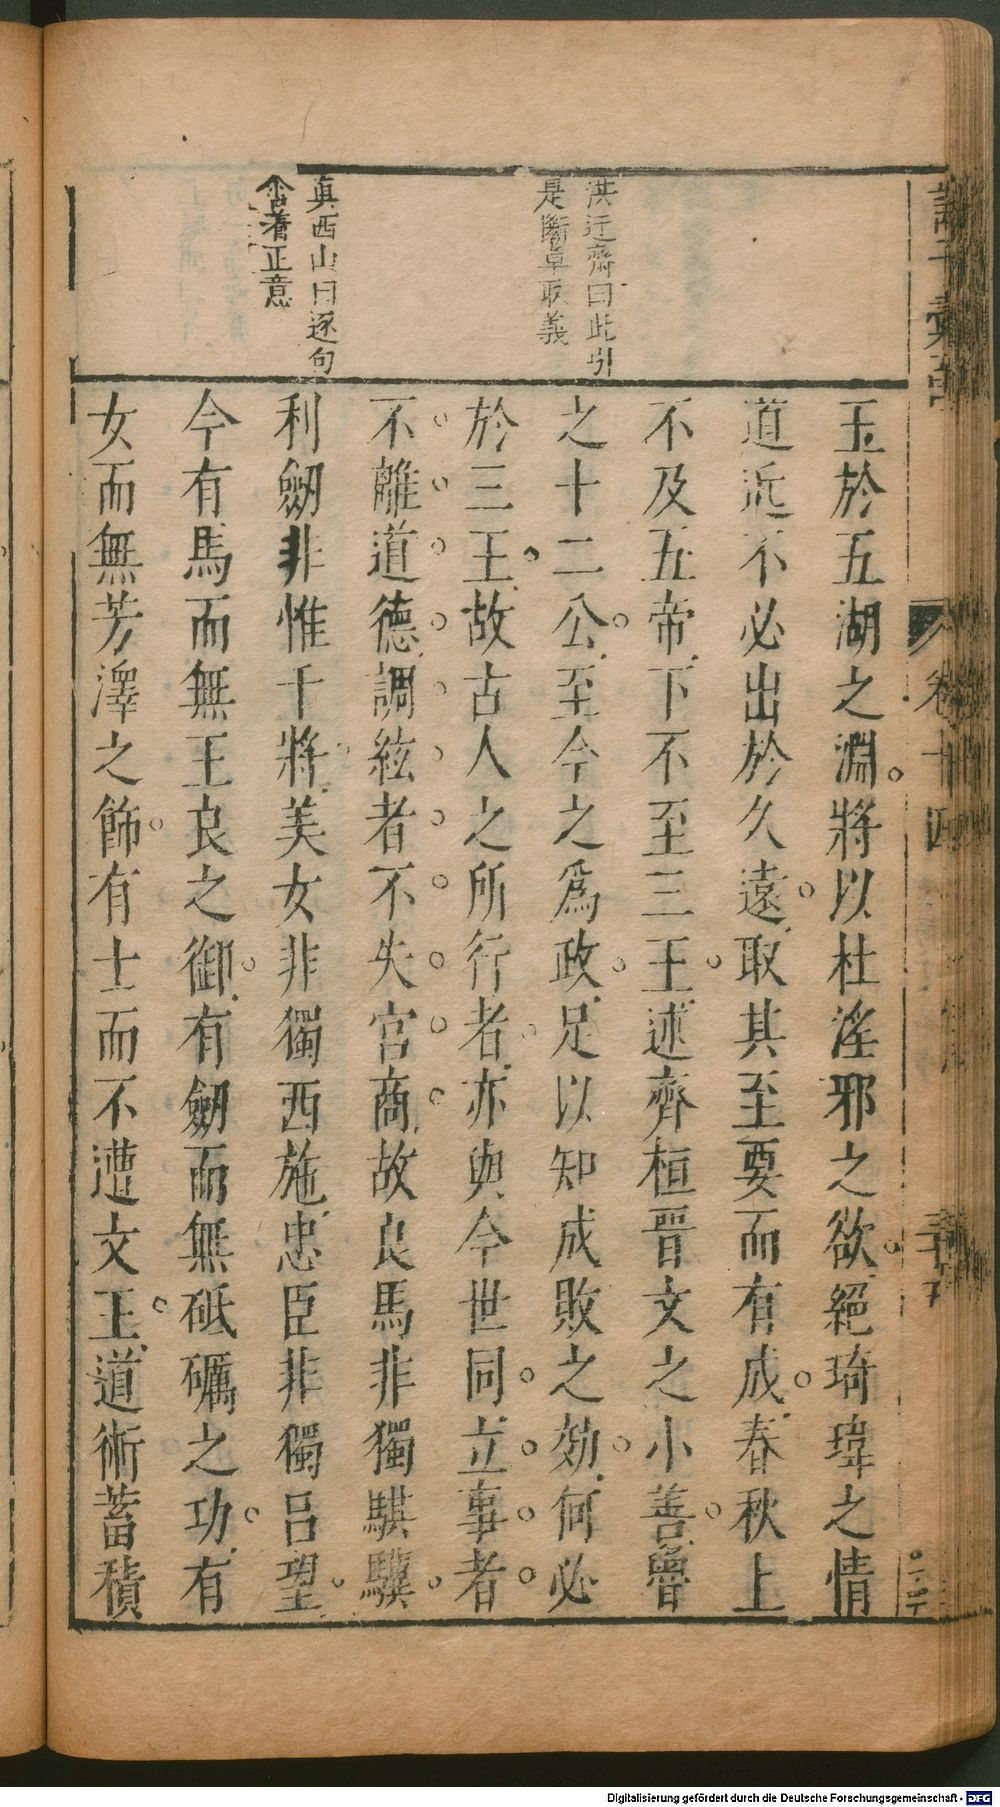 洪迂齋曰此引
是斷章取義
真西山曰逐句
含着正意
玉於五湖之淵將以杜淫邪之欲絕琦瑋之情
道近不必出於久遠取其至要而有成春秋上
不及五帝下不至三王述齊桓晉文之小善魯
之十二公至今之爲政足以知成敗之効何必
於三王故古人之所行者亦與今世同立事者
不離道德調絃者不失宮商故良馬非獨騏驥
利劒非惟干將美女非獨西施忠臣非獨呂望
今有馬而無王良之御有劒而無砥礪之功有
女而無芳澤之飾有士而不遭文王道術蓄積
卷十四
Digitalisierung gefördert durch die Deutsche Forschungsgemeinschaft - DFG